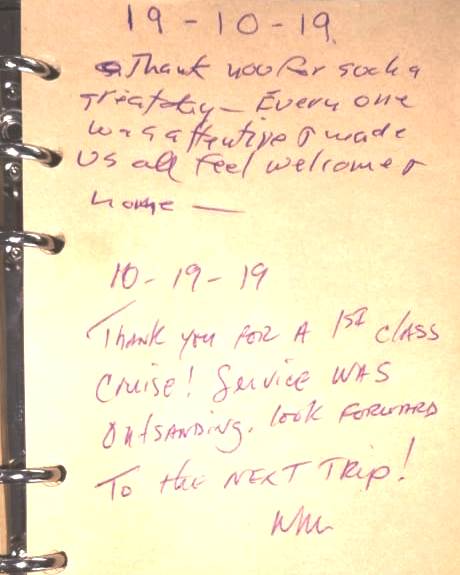 19-10-19
Thank you for such a
great day - Every one
was attentive & made
us all feel welcome &
home -
10-19-19
THANK YOU FOR A 1st class
Cruise! Service WAS
OutSANDING. look FORWARD
To the NEXT TRIP!